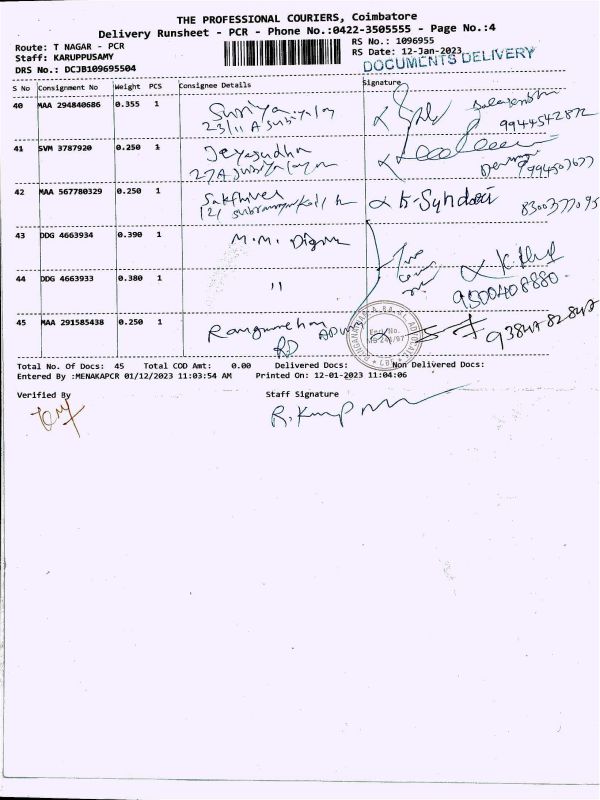 THE PROFESSIONAL COURIERS, Coimbatore
Delivery Runsheet - PCR - Phone No.:0422-3505555 - Page No.:4
Route: T NAGAR - PCR
RS No.: 1096955
Staff: KARUPPUSAMY
RS Date: 12-Jan-2023
DRS No.: DCJB109695504
DOCUMENTS DELIVERY
S No Consignment No Weight PCS Consignee Details Signature
40 MAA 294840686 0.355 1 Suriya
23/11 A
9944542872
41 SVM 3787920 0.250 1 Jeyasudha
27A
9994503677
42 MAA 567780329 0.250 1 Sakthivel
121
8300377095
43 DDG 4663934 0.390 1 M.M.
44 DDG 4663933 0.380 1 "
9500408880
45 MAA 291585438 0.250 1
RD
9384782847
Total No. Of Docs: 45 Total COD Amt: 0.00 Delivered Docs: Non Delivered Docs:
Entered By :MENAKAPCR 01/12/2023 11:03:54 AM Printed On: 12-01-2023 11:04:06
Verified By Staff Signature